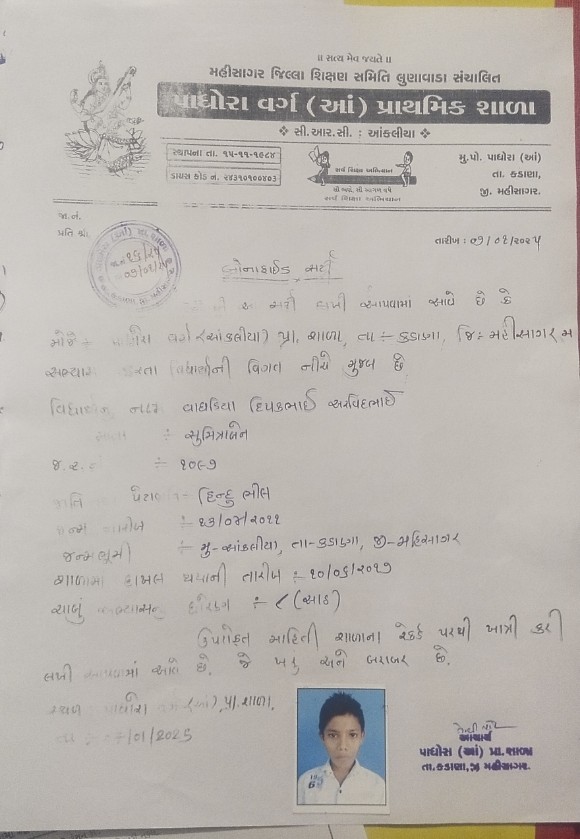 ॥ સત્ય મેવ જયતે ॥
મહીસાગર જિલ્લા શિક્ષણ સમિતિ લુણાવાડા સંચાલિત
પાધોરા વર્ગ (આં) પ્રાથમિક શાળા
❖ સી.આર.સી. : આંકલીયા ❖
સ્થાપના તા. ૧૫-૧૧-૧૯૮૪
ડાયસ કોડ નં. ૨૪૩૧૦૧૦૦૪૦૩
સર્વ શિક્ષા અભિયાન
મુ.પો. પાધોરા (આં)
તા. કડાણા,
જી. મહીસાગર.
જા.નં.
પ્રતિ શ્રી,
તારીખ : ૦૭/૦૧/૨૦૨૫
બોનાફાઈડ સર્ટી
આ સર્ટી લખી આપવામાં આવે છે કે
મોજે વર્ગ (આંકલીયા) પ્રા. શાળા, તા ÷ કડાણા, જિ ÷ મહીસાગર મ
અભ્યાસ કરતા વિદ્યાર્થીની વિગત નીચે મુજબ છે
વાઘડિયા દિપકભાઈ અરવિંદભાઈ
÷ સુમિત્રાબેન
જ.ર. ÷ ૧૦૯૭
હિન્દુ ભીલ
÷ ૨૩/૦૪/૨૦૧૧
જન્મભૂમી ÷ મુ-આંકલીયા, તા-કડાણા, જી-મહિસાગર
શાળામાં દાખલ થયાની તારીખ ÷ ૧૦/૦૬/૨૦૧૭
ચાલું ધોરણ ÷ ૮ (આઠ)
ઉપરોક્ત માહિતી શાળાના રેકર્ડ પરથી ખાત્રી કરી
લખી આપવામાં આવે છે. જે ખરૂ અને બરાબર છે.
સ્થળ પાધોરા વર્ગ (આં) પ્રા. શાળા,
તા ÷ ૦૭/01/2025
આચાર્ય
પાધોરા (આં) પ્રા. શાળા
તા. કડાણા, જી મહીસાગર.